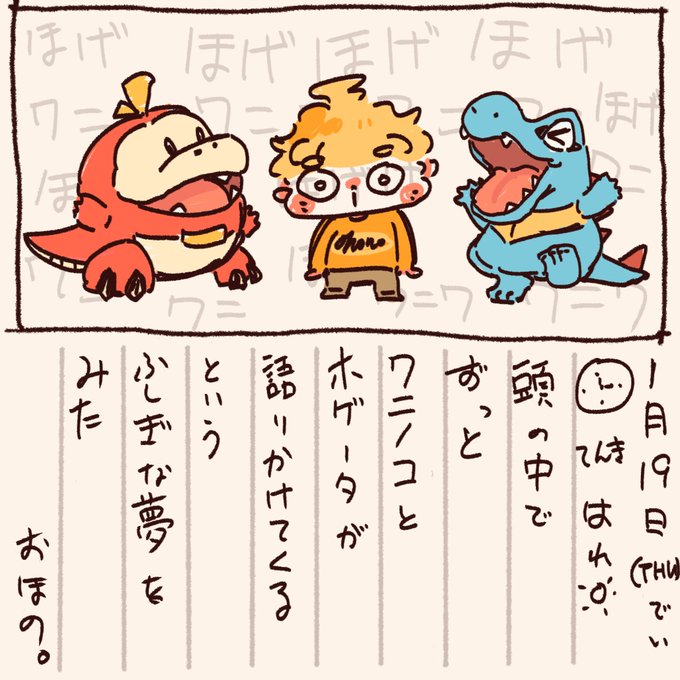 ほげ ほげ ほげ ほげ
ワニ ワニ ワニ ほげ
ワニ ワニ ワニワ ワニワ
ohono
1月19日(THU)でい
てんき はれ
頭の中で
ずっと
ワニノコと
ホゲータが
語りかけてくる
という
ふしぎな夢を
みた
おほの。